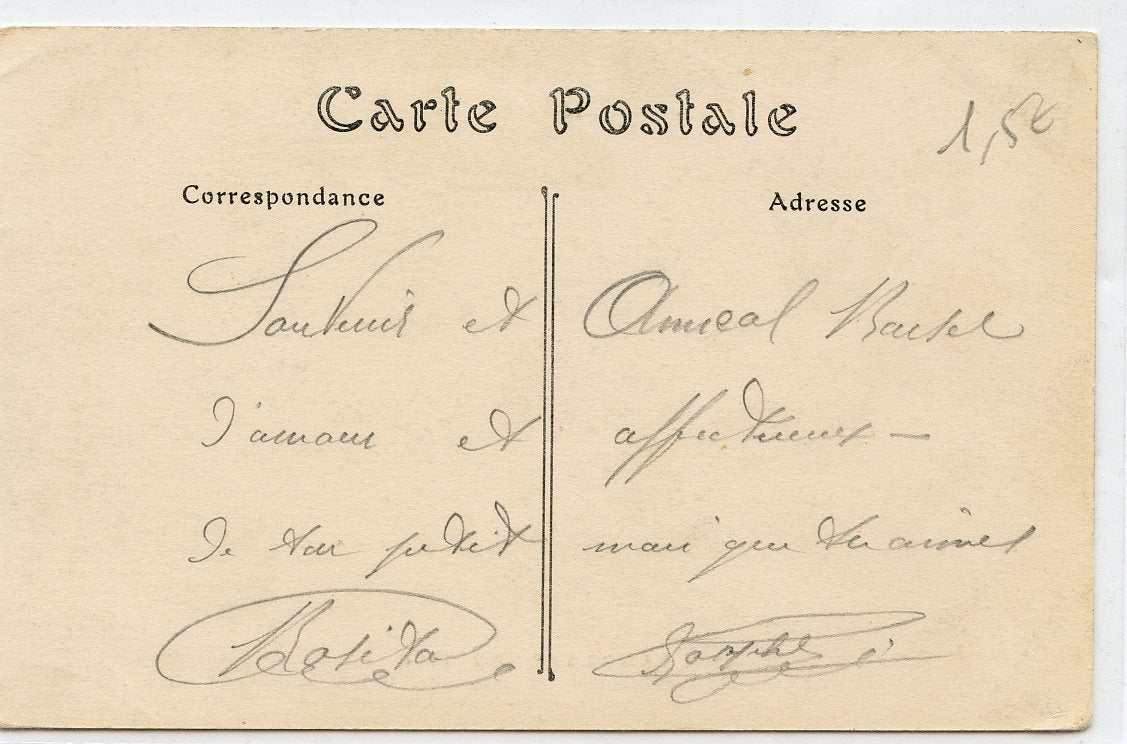 Carte Postale
1,5€
Correspondance
Adresse
Souvenir et Amical Baisel
d'amour et affectueux —
de ton petit mari que tu aimes
Rosita Josephe